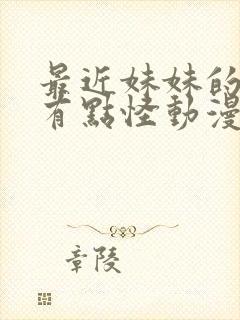 最近妹妹的
有點怪動漫
章陵